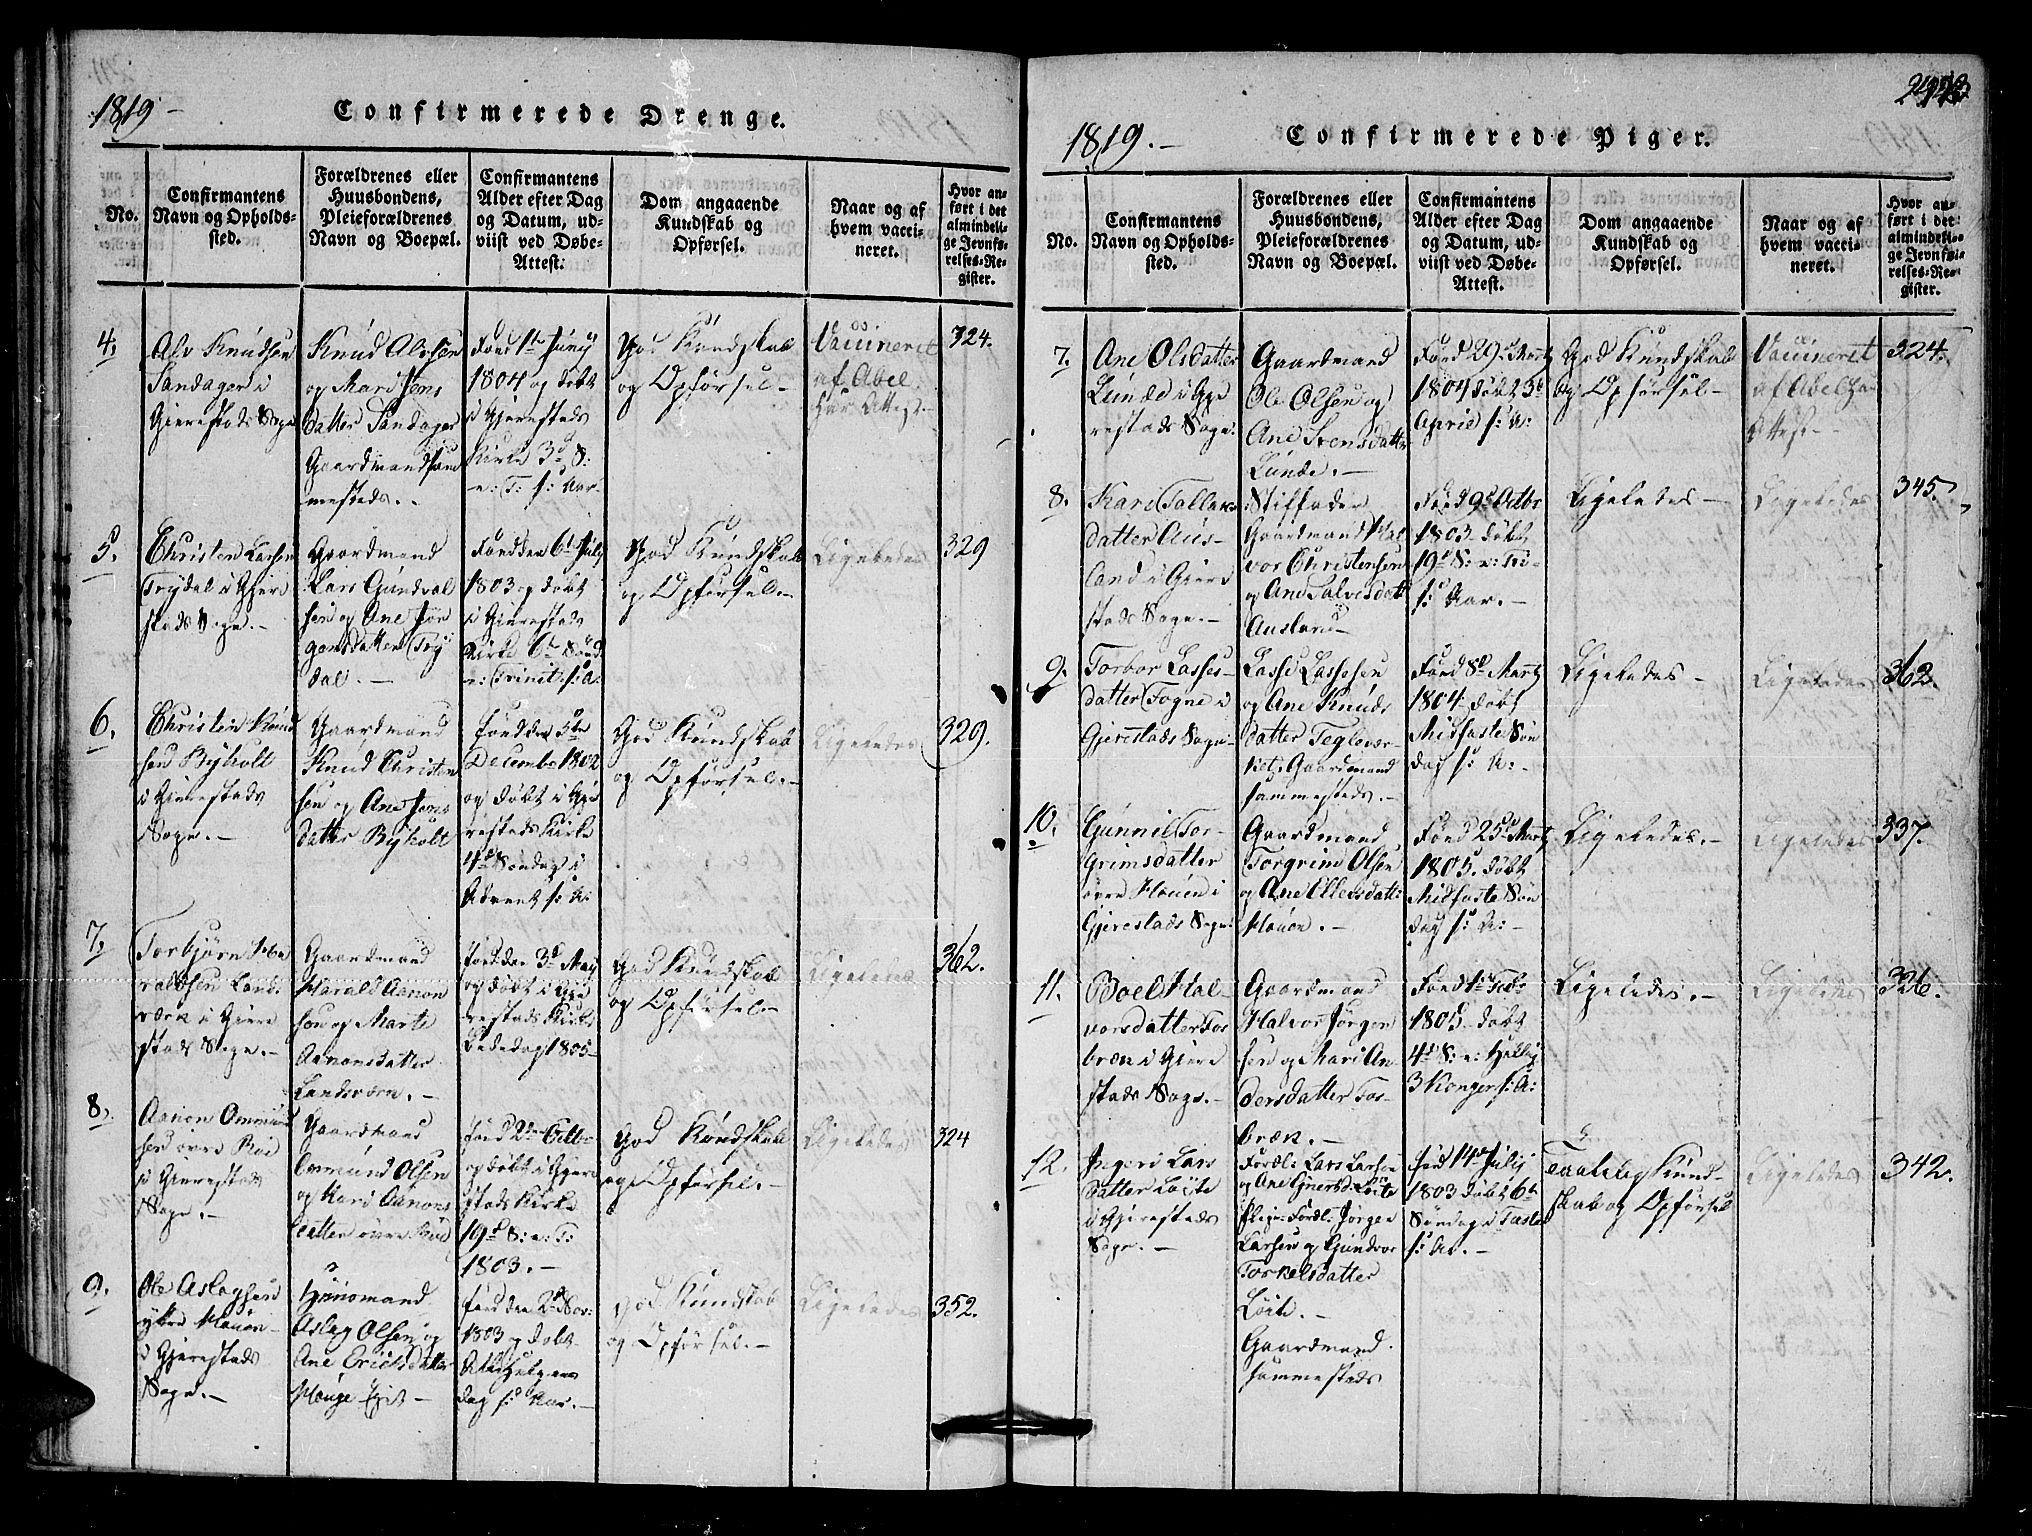 1819 –
Confirmerede Drenge.
No.
Confirmantens
Navn og Opholds-
sted.
Forældrenes eller
Huusbondens,
Pleieforældrenes
Navn og Boepæl.
Confirmantens
Alder efter Dag
og Datum, ud-
viist ved Døbe-
Attest.
Dom, angaaende
Kundskab og
Opførsel.
Naar og af
hvem vacci-
neret.
Hvor an-
ført i det
almindeli-
ge Jevnfø-
relses-Re-
gister.
4,
Alv Knudsen
Sandager i
Gierestads Sogn
Knud Alvsen
og Mari Jens
datter Sandager
Gaardmand sam
mesteds. –
Fød 1te Junij
1804 og døbt
i Gierestads
Kirke 3d S:
e: T: s: Aar
God Kundskab
og Opførsel –
Vaccineret
af Abel
har Attest –
324.
5.
Christen Larsen
Trydal i Gjere
stads Sogn. –
Gaardmand
Lars Gundval
sen og Ane Jør
gensdatter Try
dal. –
Fød den 6te July
1803 og døbt
i Gierestads
Kirke 6te Sønd
e: Trinit: s: A:
God Kundskab
og Opførsel –
Ligeledes
329
6.
Christen Knud
sen Byholt
i Gierestads
Sogn. –
Gaardmand
Knud Christen
sen og Ane Jens
datter Byholt
fød den 5te
December 1802
og døbt i Gje
restads Kirke
4de Søndag i
Advent s: A:
God Kundskab
og Opførsel. –
Ligeledes
329.
7,
Torbjørn Ha
raldsen Lands
værk i Giere
stads Sogn. –
Gaardmand
Harald Aanon
sen og Marte
Aanonsdatter
Landsværn. –
fød den 3d May
og døbt i Gje
restads Kirke
Bededag 1805 –
God Kundskab
og Opførsel –
Ligeledes
362.
8,
Aanon Ommund
sen øvre Roe
i Gierestads
Sogn. –
Gaardmand
Ommund Olsen
og Kari Aanons
datter øvre Roe
fød 2den Octbr
og døbt i Gjere
stads Kirke
19d S: e: T:
1803. –
God Kundskab
og Opførsel. –
Ligeledes
324
9.
Ole Aslagsen
ytre Houen
i Gjerestads
Sogn. –
Huusmand
Aslag Olsen og
Ane Ericksdatter
Houge Eyet –
fød den 2d Nov:
1803 og døbt
Alle Helgens
dag s: Aar. –
god Kundskab
og Opførsel –
Ligeledes
352.
1819. –
Confirmerede Piger.
No.
Confirmantens
Navn og Opholds-
sted.
Forældrenes eller
Huusbondens,
Pleieforældrenes
Navn og Boepæl.
Confirmantens
Alder efter Dag
og Datum, ud-
viist ved Døbe-
Attest.
Dom angaaende
Kundskab og
Opførsel.
Naar og af
hvem vacci-
neret.
Hvor an-
ført i det
almindeli-
ge Jevnfø-
relses-Re-
gister.
7.
Ane Olsdatter
Lunde i Gje
restads Sogn:
Gaardmand
Ole Olsen og
Ane Stensdatter
Lunde. –
Fød 29d Martz
1804 døbt 3de
April s: A:
God Kundskab
og Opførsel –
Vaccineret
af Abel har
Attest –
324.
8.
Kari Tallaks
datter Aus-
land i Giere
stads Sogn. –
Stiffader
Gaardmand Hal
vor Christensen
og Ane Salvesdatt
Ausland –
Fød 9d Octbr
1803 døbt
19d S: e: Tri-
s: Aar. –
Ligeledes –
Ligeledes
345.
9.
Torbor Lasses-
datter Togne i
Gjerestads Sogn
Lasse Lassesen
og Ane Knuds
datter Teglevær
ket, Gaardmand
sammesteds. –
Fød 8de Martz
1804 døbt
Midfaste Søn
dag s: A: –
Ligeledes –
Ligeledes
362.
10.
Gunnil Tor-
grimsdatter
øvre Houen i
Gjerestads Sogn:
Gaardmand
Torgrim Olsen
og Ane Ellensdatt:
Houen. –
Fød 25d Martz
1805. døbt
Midfaste Søn
dag s: A: –
Ligeledes. –
Ligeledes
337.
11.
Boel Hal-
vorsdatter Fos
bræn i Giere
stads Sogn. –
Gaardmand
Halvor Jørgen
sen og Mari An
dersdatter Fos-
bræk. –
Fød 1te Febr
1805 døbt
4d S: e: Hellig
3 Konger s: A:
Ligeledes. –
Ligeledes
326.
12.
Ingeri Lars
datter Løite
i Gjerestads
Sogn. –
Foræl: Lars Larsen
og Ane Gjersd: Løite
Pleje-Foræl: Jørgen
Larsen og Gundvor
Torkelsdatter
Løite. –
Gaardmand
sammesteds
fød 14de July
1803 døbt 6te
Søndag i Faste
s: A. –
Taalelig Kund-
skab og Opførsel
Ligeledes
342.